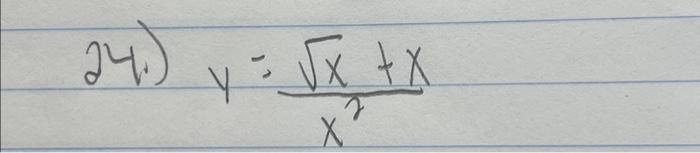 24.) y = √x + x
x²